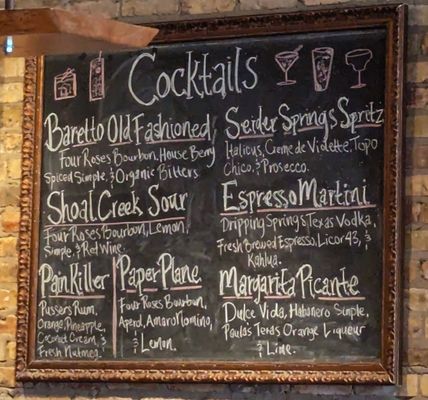 Cocktails
Baretto Old Fashioned
Four Roses Bourbon, House Berry
Spiced Simple, & Organic Bitters
Shoal Creek Sour
Four Roses Bourbon, Lemon,
Simple, & Red Wine.
Pain Killer
Pussers Rum,
Orange, Pineapple,
Coconut Cream, &
Fresh Nutmeg.
Paper Plane
Four Roses Bourbon,
Aperol, Amaro Nomino,
& Lemon.
Seider Springs Spritz
Italicus, Creme de Violette, Topo
Chico, & Prosecco.
Espresso Martini
Dripping Springs, Texas Vodka,
Fresh Brewed Espresso, Licor 43, &
Kahlua.
Margarita Picante
Dulce Vida, Habanero Simple,
Paulas Texas Orange Liqueur
& Lime.